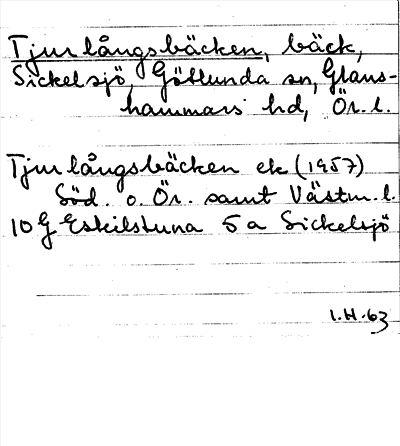 Tjurlångsbäcken, bäck,
Sickelsjö, Götlunda sn, Glans-
hammars hd, Ör. l.
Tjurlångsbäcken ek (1957)
Söd. o. Ör. samt Västm. l.
10 G Eskilstuna 5 a Sickelsjö
I.H.63